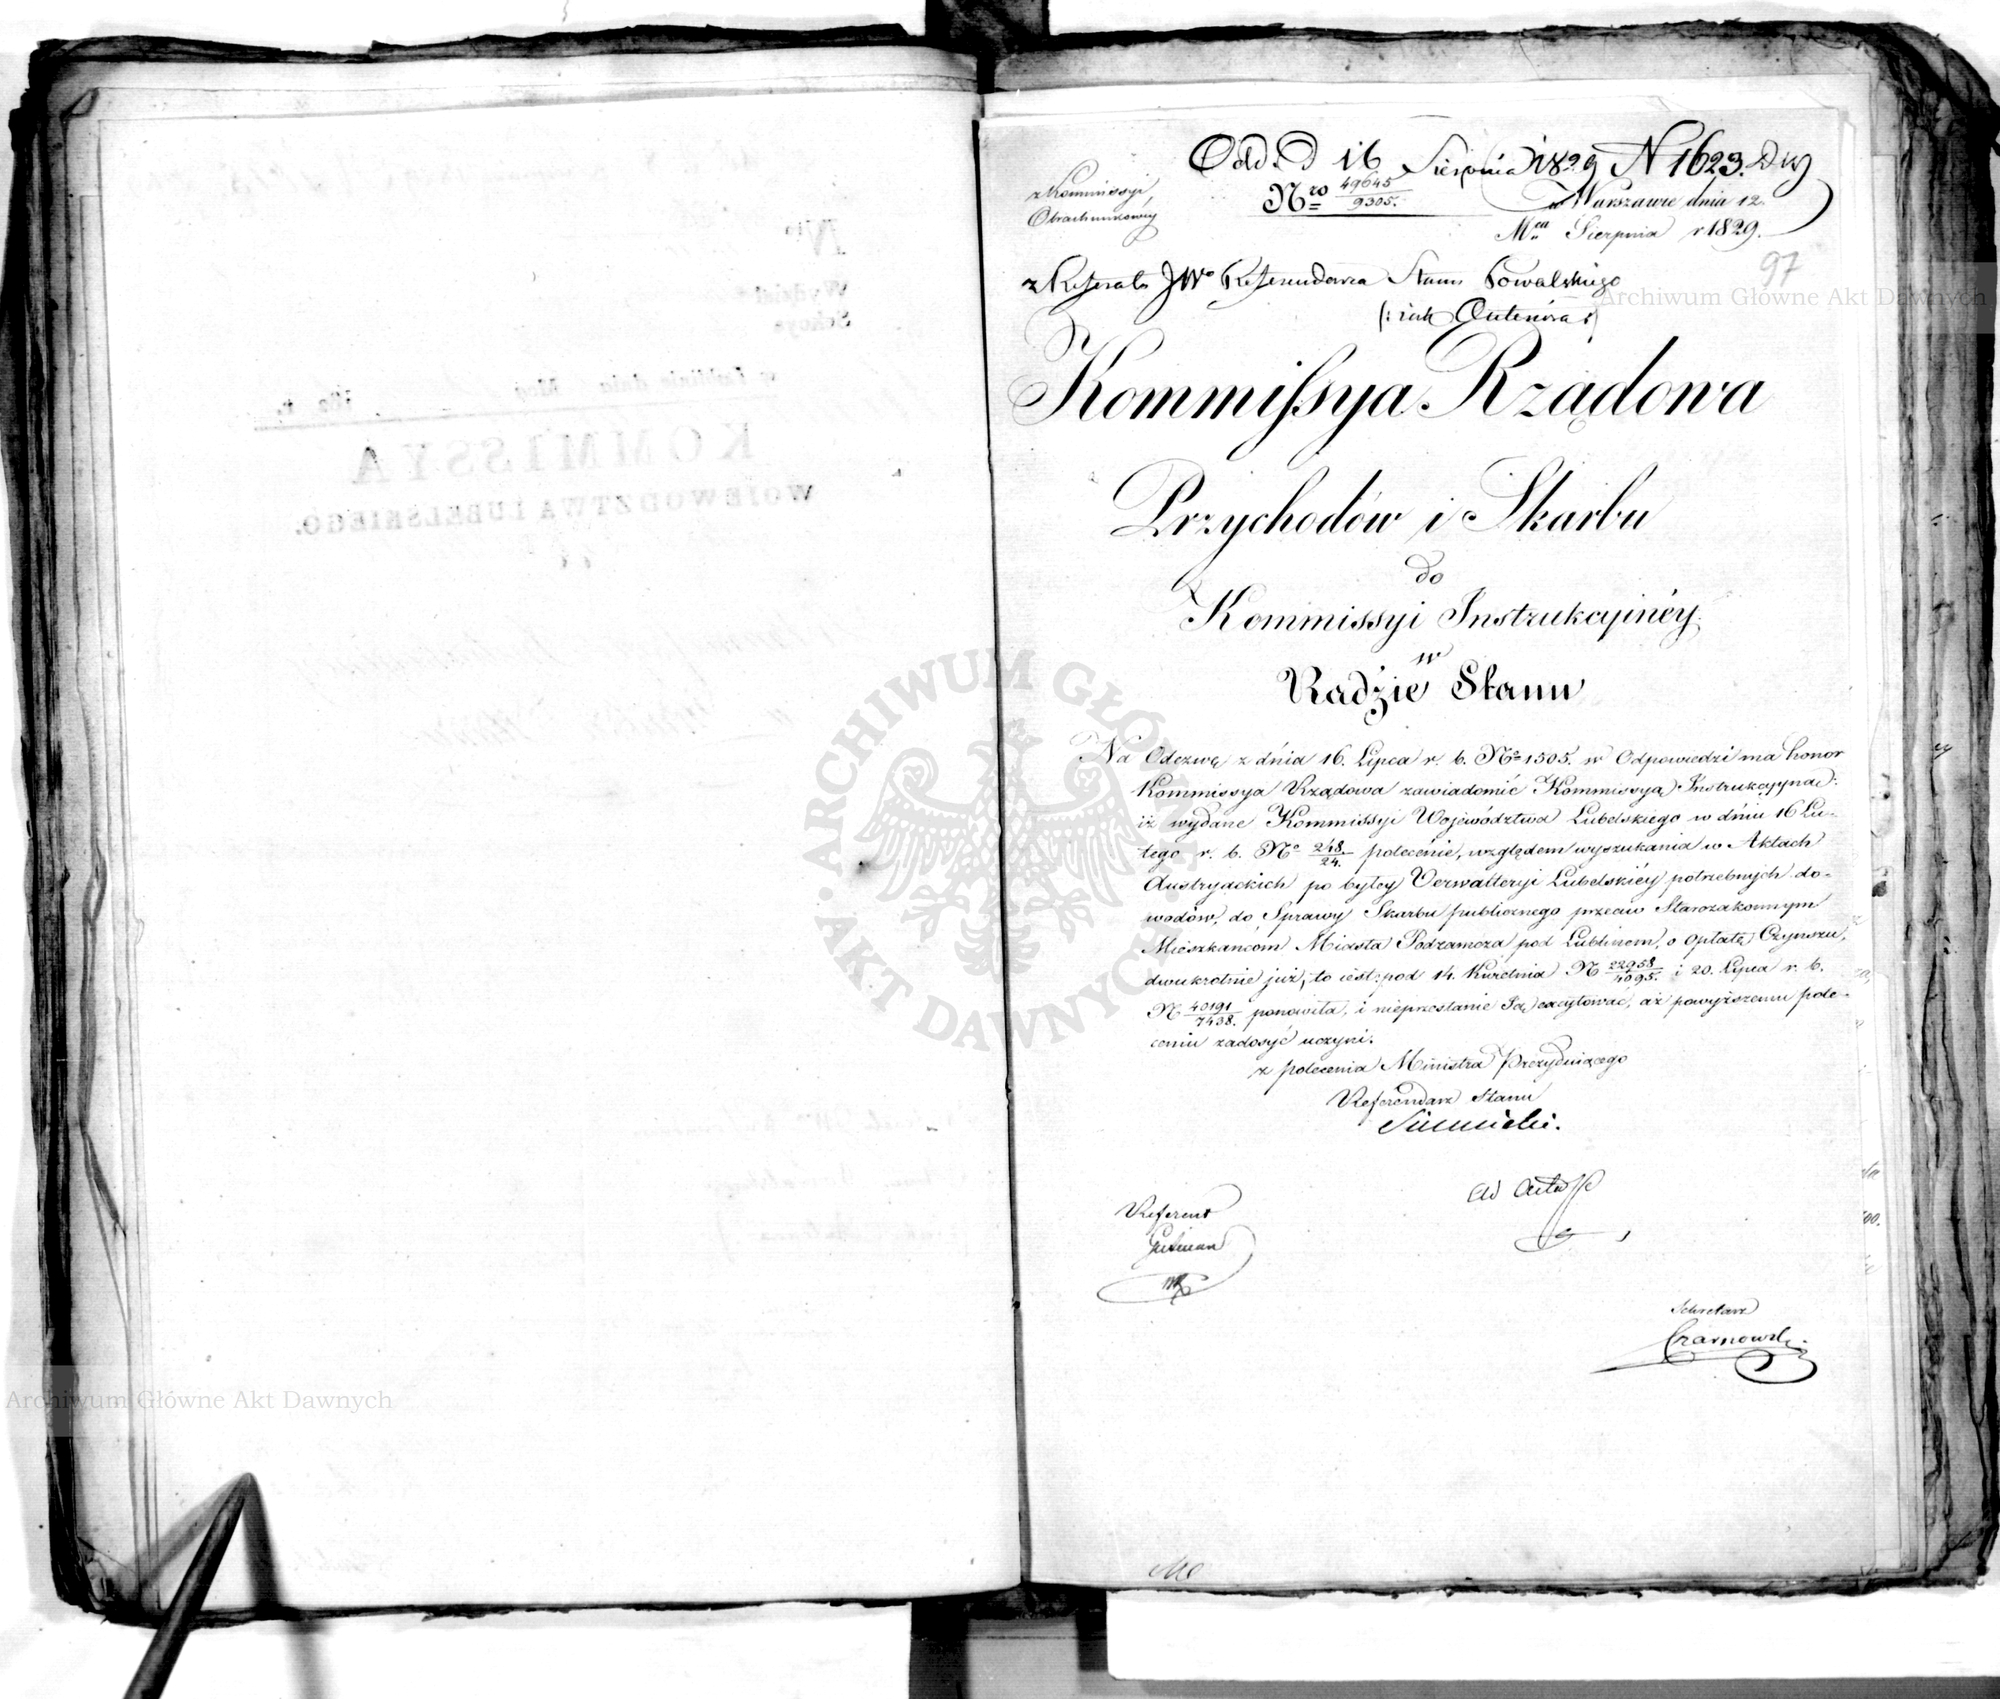 Odd. D 16 Sierpnia 1829 N 1623.
z Kommissyi
Obrachunkowéy
Nro 49645/9305.
w Warszawie dnia 12.
Mca Sierpnia r 1829.
97
z Referatu JWo Referendarza Stanu Kowalskiego
(: iak Antenora :)
Kommissya Rządowa
Przychodów i Skarbu
do
Kommissyi Instrukcyinéy
w
Radzie Stanu
Na Odezwę z dnia 16. Lipca r. b. No 1505. w Odpowiedzi ma honor
Kommissya Rządowa zawiadomić Kommissyą Instrukcyyną:
iż wydane Kommissyi Województwa Lubelskiego w dniu 16 Lu-
tego r. b. No 248./24. polecenie, względem wyszukania w Aktach
Austryackich po byłey Verwalteryi Lubelskiéy potrzebnych do-
wodów, do Sprawy Skarbu publicznego przeciw Starozakonnym
Mieszkańcom Miasta Podzamcza pod Lublinem, o opłatę Czynszu,
dwukrotnie już, to iest: pod 14. Kwietnia N 22958/4095. i 20. Lipca r. b.
N 40191/7438. ponowiła, i nieprzestanie Ją excytować, aż powyższemu pole-
ceniu zadosyć uczyni.
z polecenia Ministra Prezyduiącego
Referendarz Stanu
Referent
Sekretarz
Czarnowski
KOMMISSYA
WOJEWODZTWA LUBELSKIEGO.
w Lublinie dnia Mca 182 r.
Wydział
Sekcya
ARCHIWUM GŁÓWNE AKT DAWNYCH
Archiwum Główne Akt Dawnych
Archiwum Główne Akt Dawnych